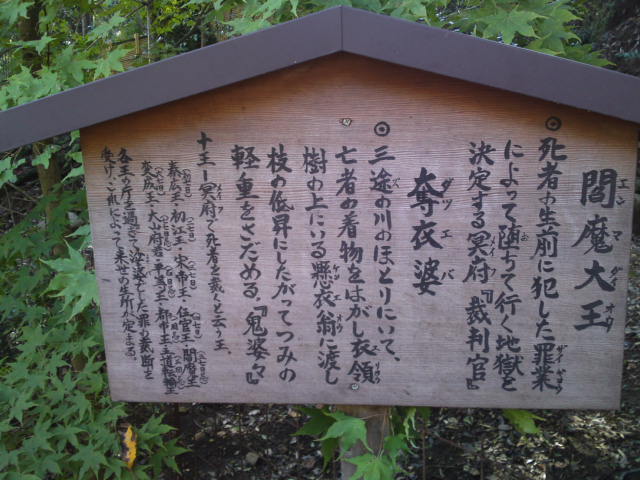 閻魔大王
エンマダイオウ
◎死者の生前に犯した罪業
ザイゴウ
によって堕ちて行く地獄を
お
決定する冥府『裁判官』
メイフ
奪衣婆
ダツエバ
◎三途の川のほとりにいて、
ズ
亡者の着物をはがし衣領
リョウ
樹の上にいる懸衣翁に渡し
ケンエオウ
枝の低昇にしたがってつみの
軽重をさだめる。『鬼婆々』
十王ー冥府で死者を裁くと云う王。
メイフ
秦広王・初江王・宋帝王・伍官王・閻魔王
変成王・太山府君・平等王・都市王・五道転輪王
各王の庁を過ぎて 娑婆でした罪の裁断を
受け、これによって来世の生所が定まる。